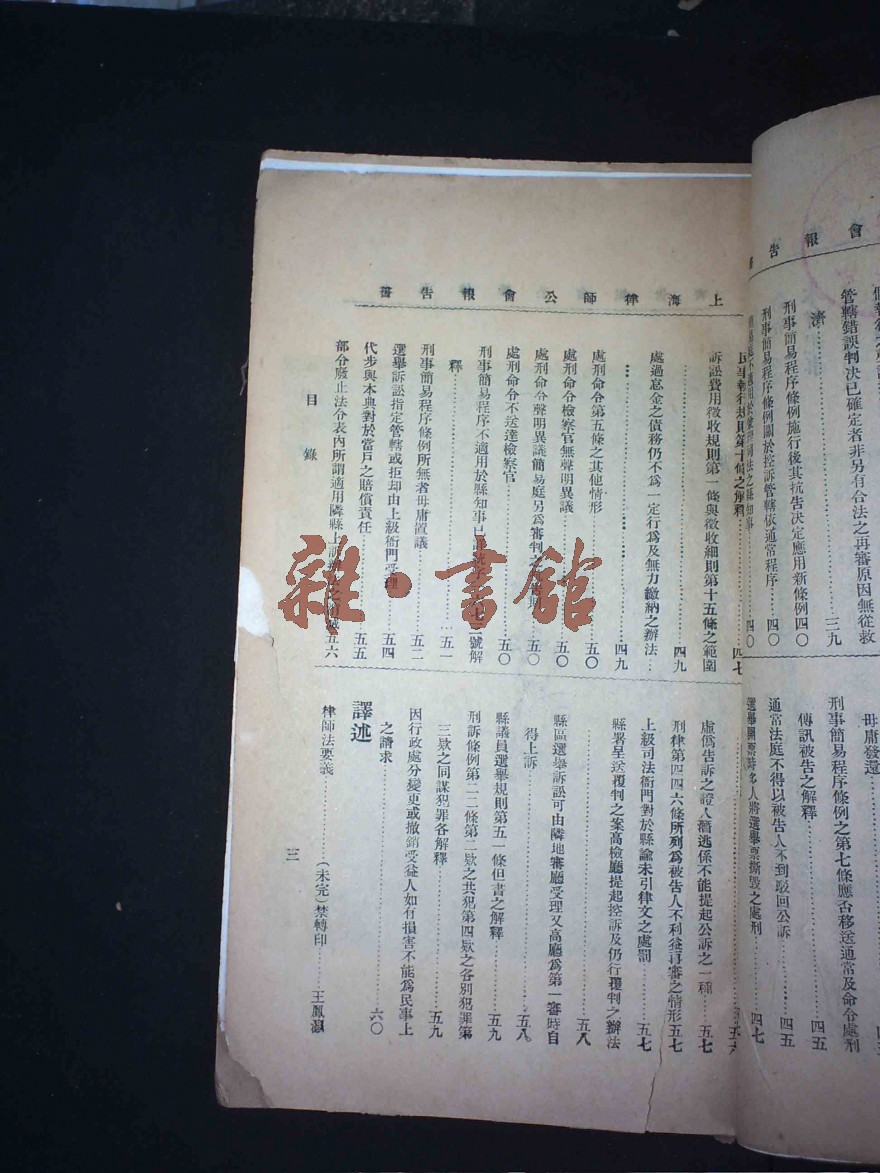 會報告
管轄錯誤判决已確定者非另有合法之再審原因無從救
濟……三九
刑事簡易程序條例施行後其抗告决定應用新條例四〇
刑事簡易程序條例關於控訴管轄依通常程序……四〇
四〇
毋庸發還
刑事簡易程序條例之第七條應否移送通常及命令處刑
傳訊被告之解釋……四五
通常法庭不得以被告人不到駁回公訴……四五
選舉開票時多人將選舉票撕毀之處刑……四七
上海律師公會報告書
民事執行規則第十條之解釋……四七
訴訟費用徵收規則第一條與徵收細則第十五條之範圍
……四九
處過怠金之債務仍不爲一定行爲及無力繳納之辦法…
……四九
處刑命令第五條之其他情形……五〇
處刑命令檢察官無聲明異議……五〇
處刑命令聲明異議簡易庭另爲審判之……五〇
處刑命令不送達檢察官……五〇
刑事簡易程序不適用於縣知事已……號解
釋……五一
刑事簡易程序條例所無者毋庸置議……五二
選舉訴訟指定管轄或拒却由上級衙門受理……五四
代步與本典對於當戶之賠償責任……五五
部令廢止法令表內所謂適用隣縣上訴……五六
虛僞告訴之證人潛逃係不能提起公訴之一種……五七
刑律第四四六條所列爲被告人不利益再審之情形五七
上級司法衙門對於縣諭未引律文之處罰……五七
縣署呈送覆判之案高檢廳提起控訴及仍行覆判之辦法
……五八
縣區選舉訴訟可由隣地審廳受理又高廳爲第一審時自
得上訴……五八
縣議員選舉規則第五一條但書之解釋……五九
刑訴條例第二二條第二欵之共犯第四欵之各別犯罪第
三欵之同謀犯罪各解釋……五九
因行政處分變更或撤銷受益人如有損害不能爲民事上
之請求……六〇
譯述
律師法要義……(未完)禁轉印……王鳳瀛
目錄
三
雜·書館